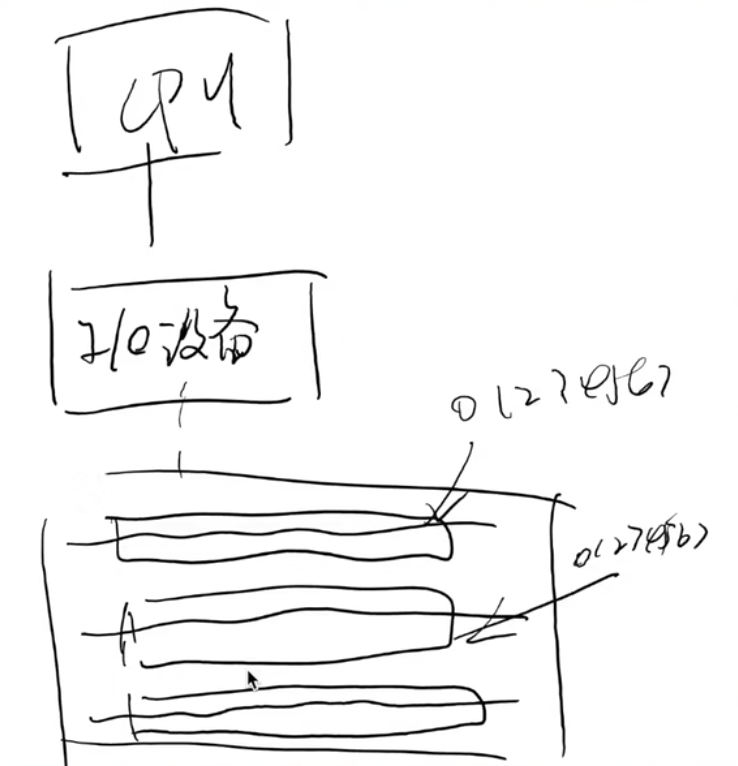 CPU
I/O设备
01234567
01234567